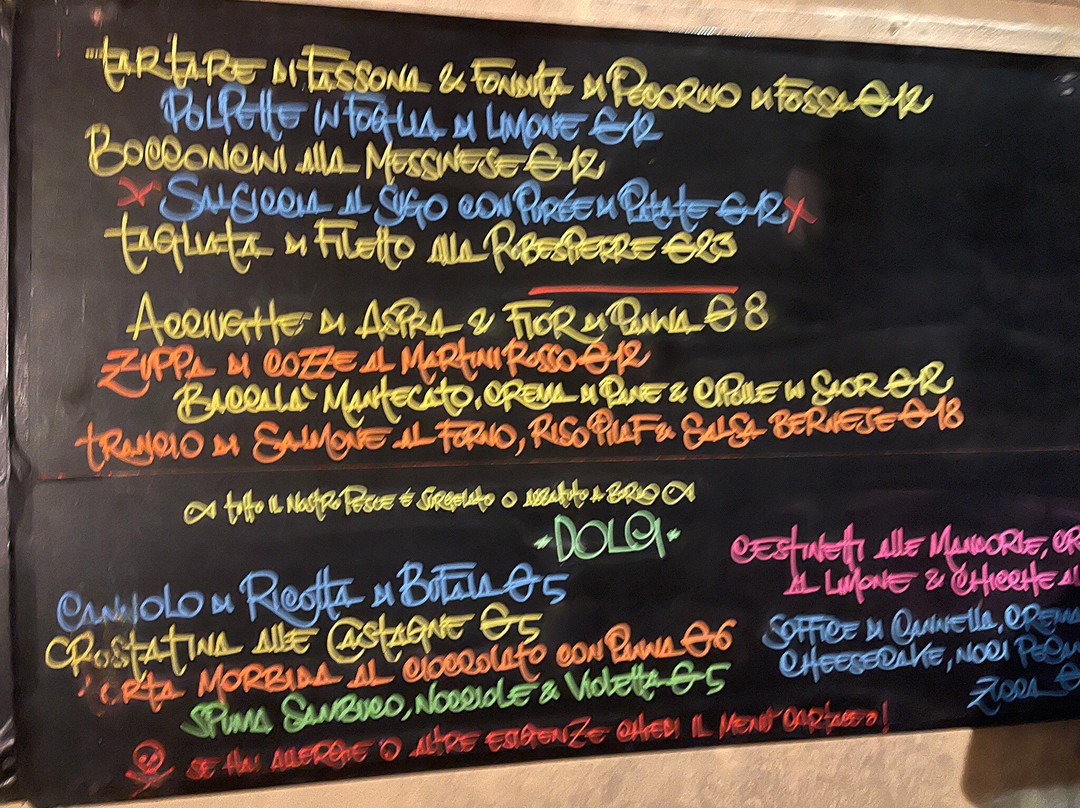 Tartare di Fassona & Fonduta di Pecorino di Fossa € 12
Polpette in Foglia di Limone € 12
Bocconcini alla Messinese € 12
x Salsiccia al Sugo con Purée di Patate € 12 x
Tagliata di Filetto alla Robespierre € 23
Acciughe di Aspra & Fior di Panna € 8
Zuppa di Cozze al Martini Rosso € 12
Baccalà Mantecato, Crema di Pane & Cipolle in Saor € 12
Trancio di Salmone al Forno, Riso Pilaf & Salsa Bernese € 18
Tutto il nostro Pesce è surgelato o abbattuto a bordo
-DOLCI-
Cannolo di Ricotta di Bufala € 5
Crostatina alle Castagne € 5
Torta Morbida al Cioccolato con Panna € 6
Spuma Sambuco, Nocciole & Violetta € 5
Cestinetti alle Mandorle, Cr
al Limone & Chicche al
Soffice di Cannella, Crema
Cheesecake, Noci Pecan
Zucca €
Se hai allergie o altre esigenze chiedi il menù cartaceo!